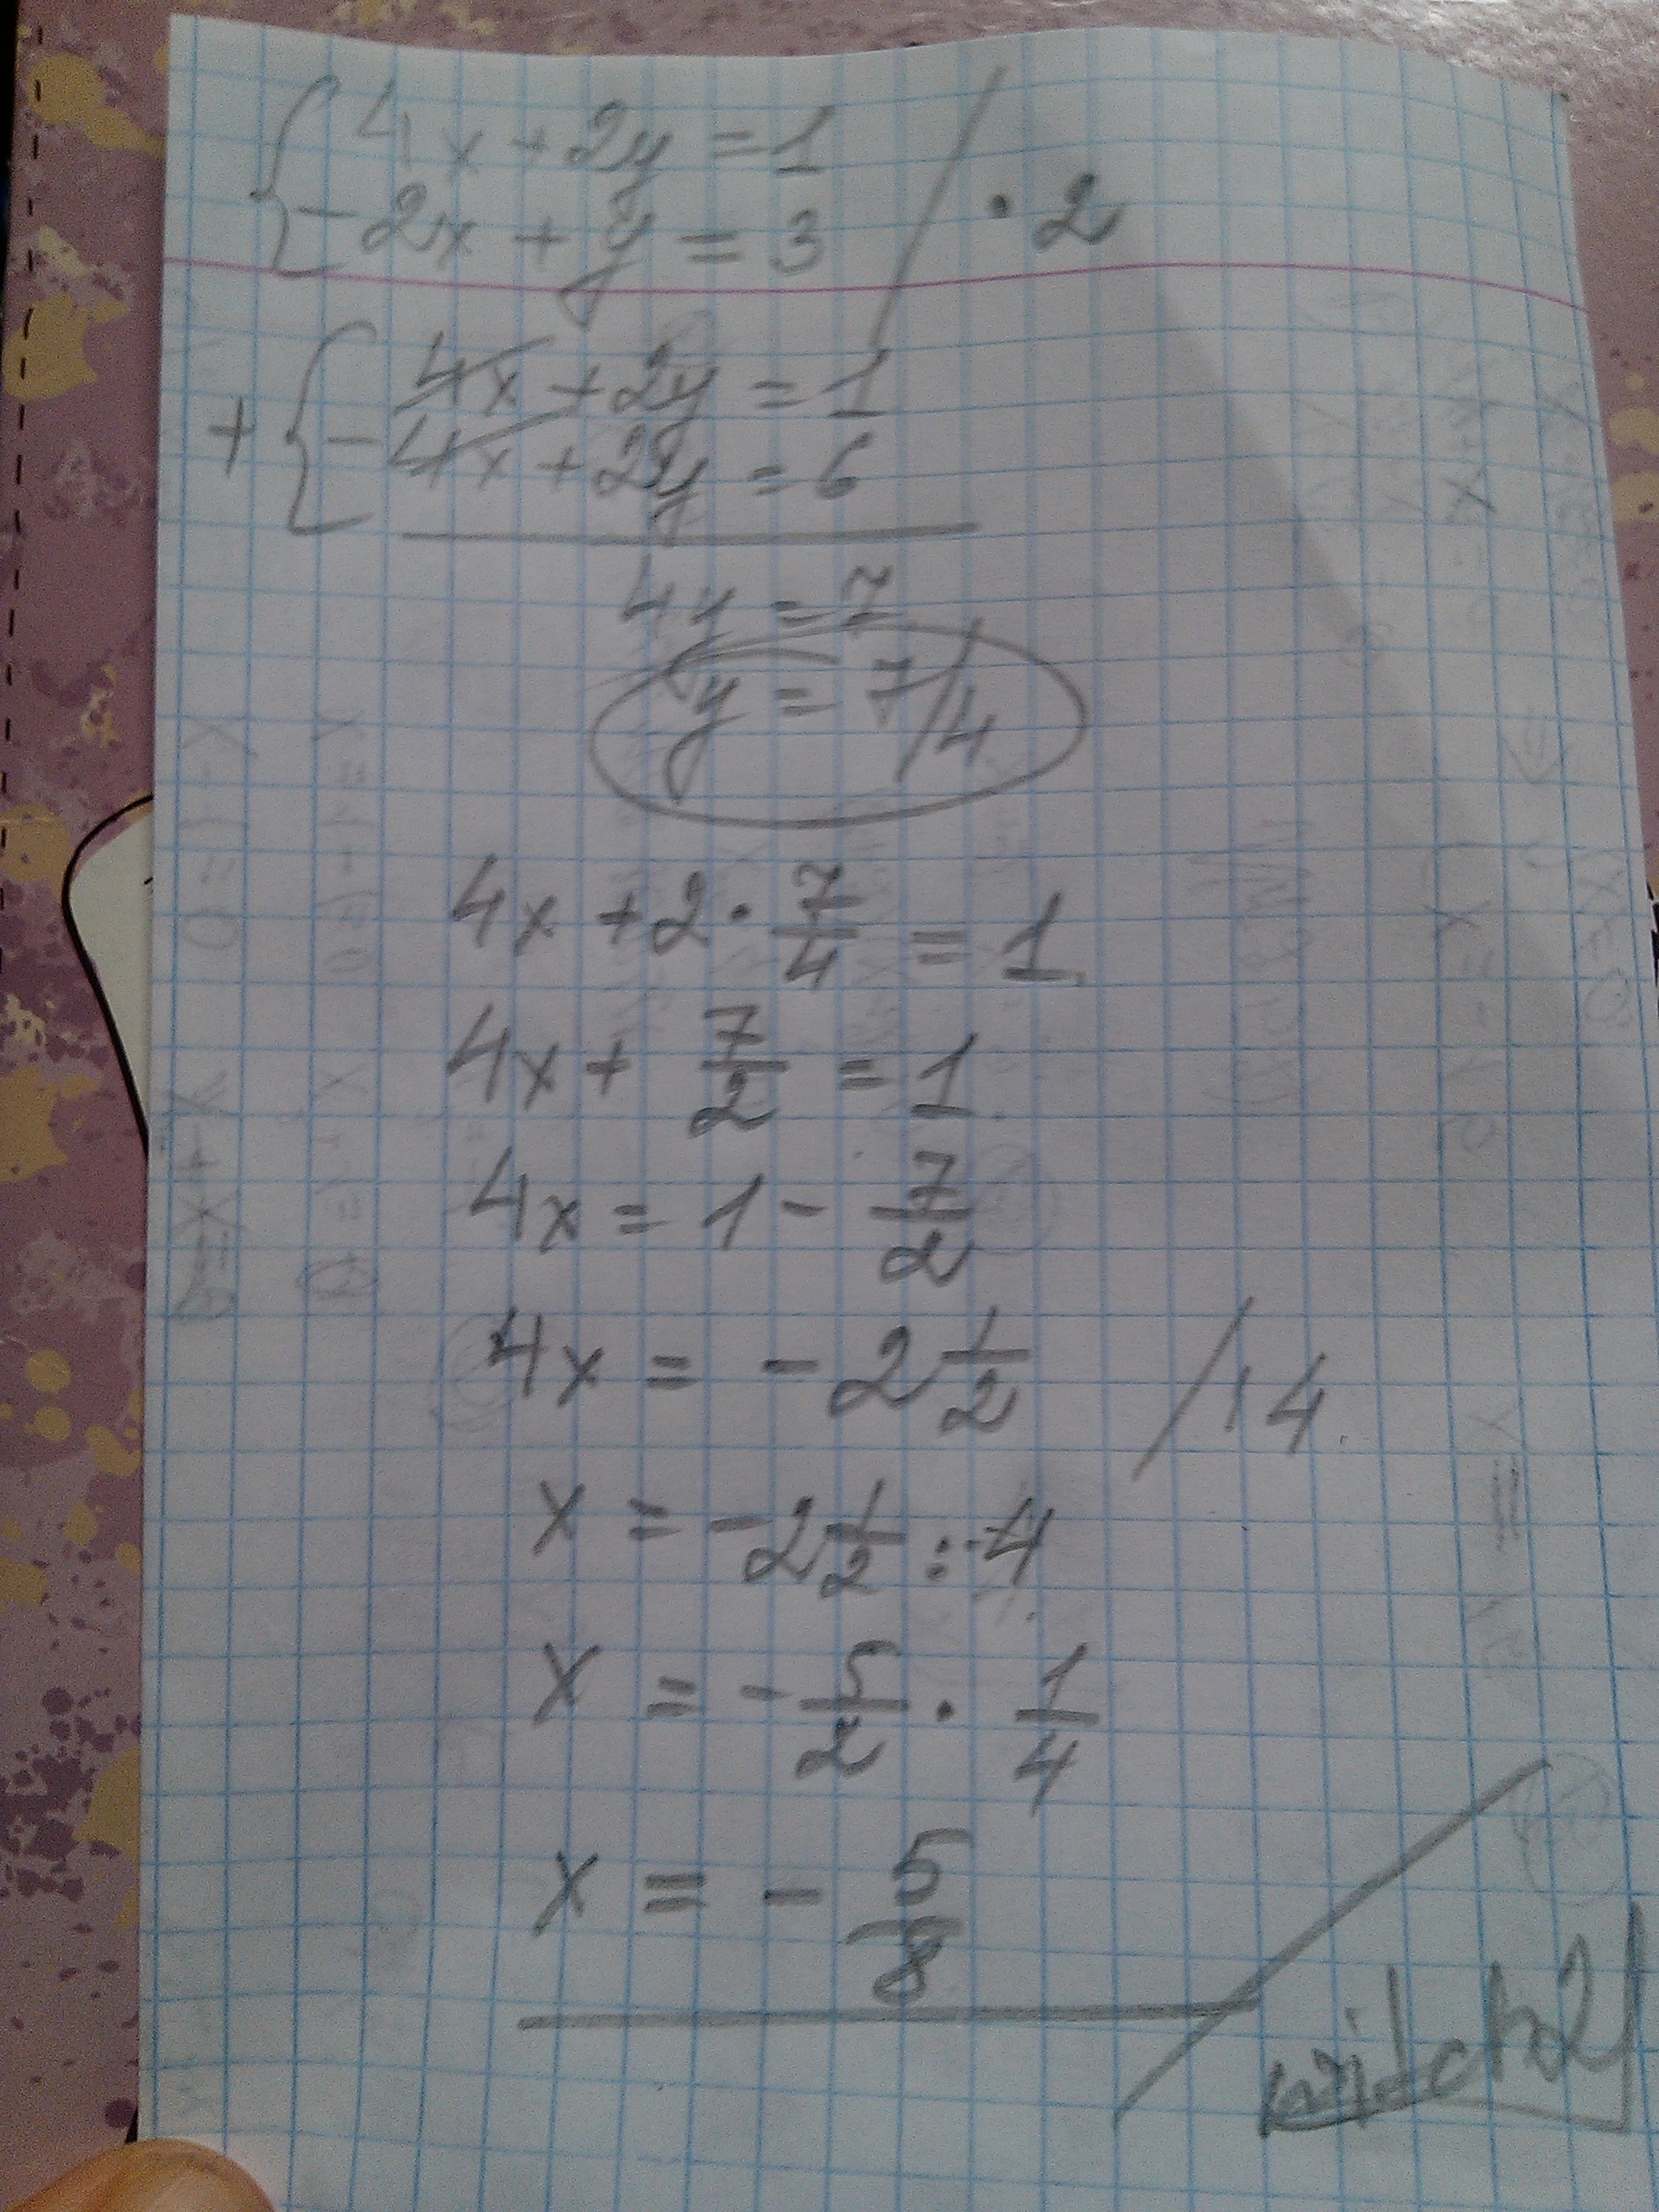 4x + 2y = 1
-2x + y = 3 / · 2
4x + 2y = 1
+ { -4x + 2y = 6
4y = 7
y = 7/4
4x + 2 · 7/4 = 1
4x + 7/2 = 1
4x = 1 - 7/2
4x = - 2 1/2 / : 4
x = - 2 1/2 : 4
x = - 5/2 · 1/4
x = - 5/8
witch21